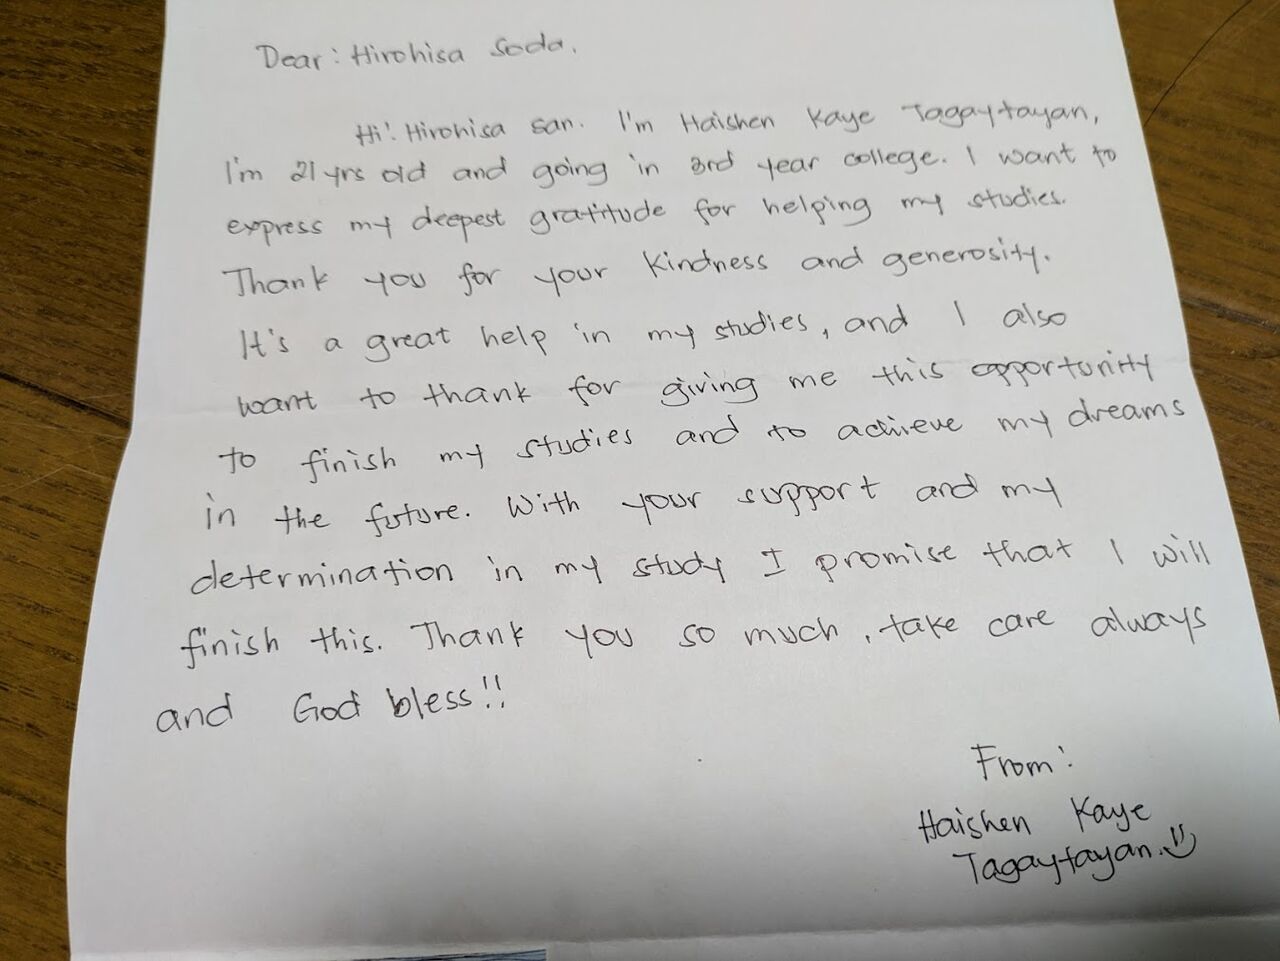 Dear: Hirohisa Soda,
Hi! Hirohisa san. I'm Haishen Kaye Tagaytayan,
I'm 21 yrs old and going in 3rd year college. I want to
express my deepest gratitude for helping my studies.
Thank you for your kindness and generosity.
It's a great help in my studies, and I also
want to thank for giving me this opportunity
to finish my studies and to achieve my dreams
in the future. With your support and my
determination in my study I promise that I will
finish this. Thank you so much, take care always
and God bless!!
From:
Haishen Kaye
Tagaytayan.